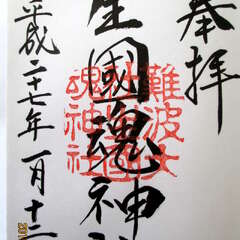 奉拝
生國魂神
平成二十七年一月十二
難波大
社生國
魂神社